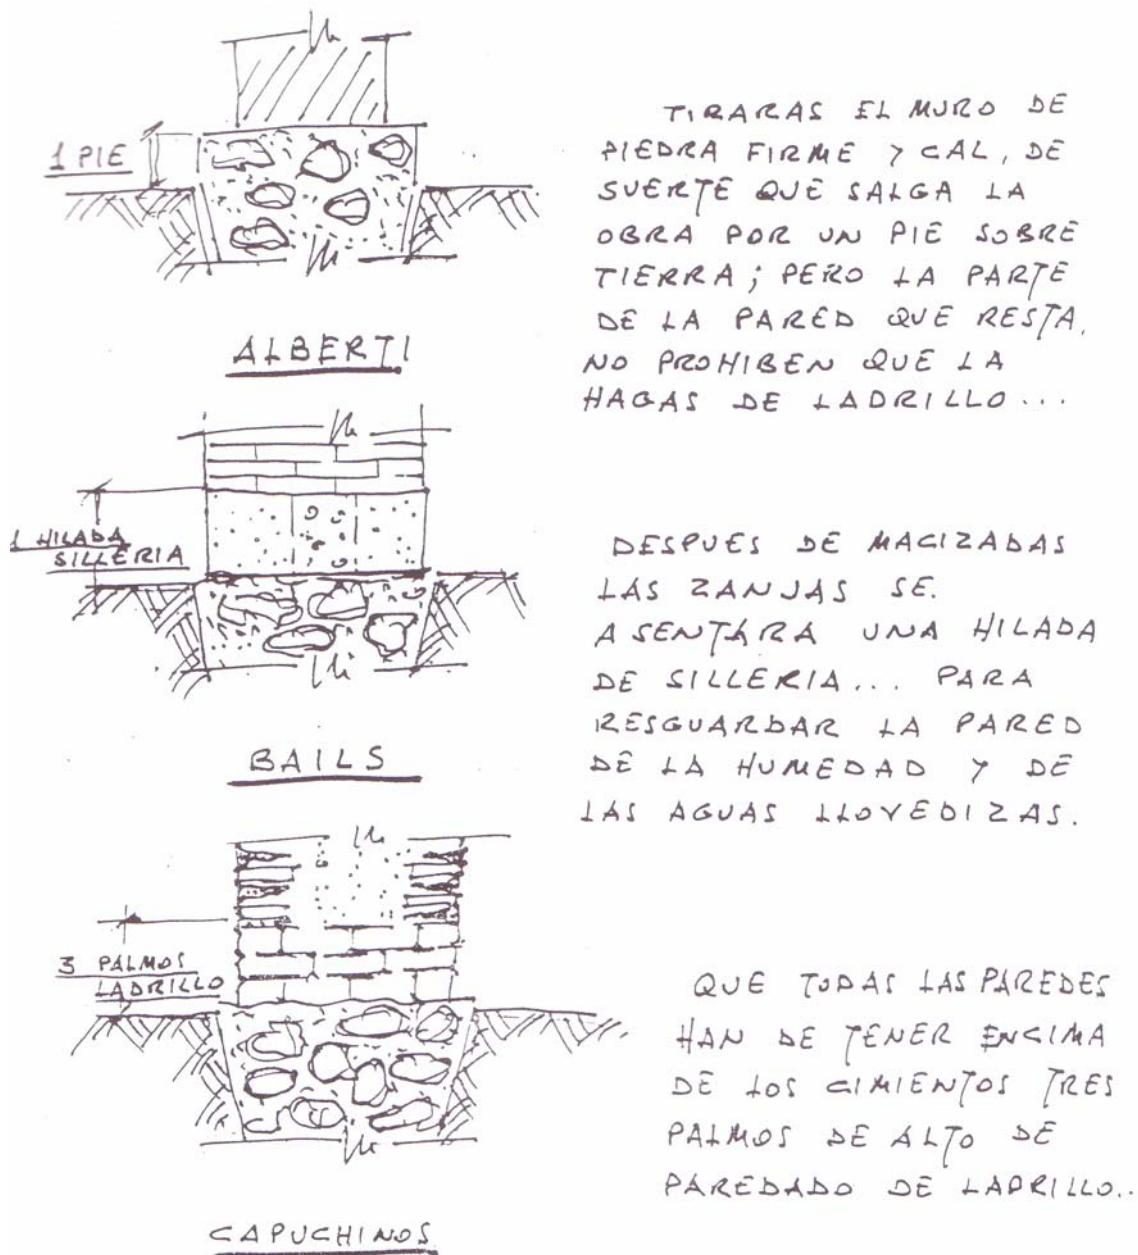 1 PIE
ALBERTI
TIRARAS EL MURO DE
PIEDRA FIRME Y CAL, DE
SUERTE QUE SALGA LA
OBRA POR UN PIE SOBRE
TIERRA; PERO LA PARTE
DE LA PARED QUE RESTA,
NO PROHIBEN QUE LA
HAGAS DE LADRILLO...
1 HILADA
SILLERIA
BAILS
DESPUES DE MACIZADAS
LAS ZANJAS SE.
ASENTARA UNA HILADA
DE SILLERIA... PARA
RESGUARDAR LA PARED
DE LA HUMEDAD Y DE
LAS AGUAS LLOVEDIZAS.
3 PALMOS
LADRILLO
CAPUCHINOS
QUE TODAS LAS PAREDES
HAN DE TENER ENCIMA
DE LOS CIMIENTOS TRES
PALMOS DE ALTO DE
PAREDADO DE LADRILLO..